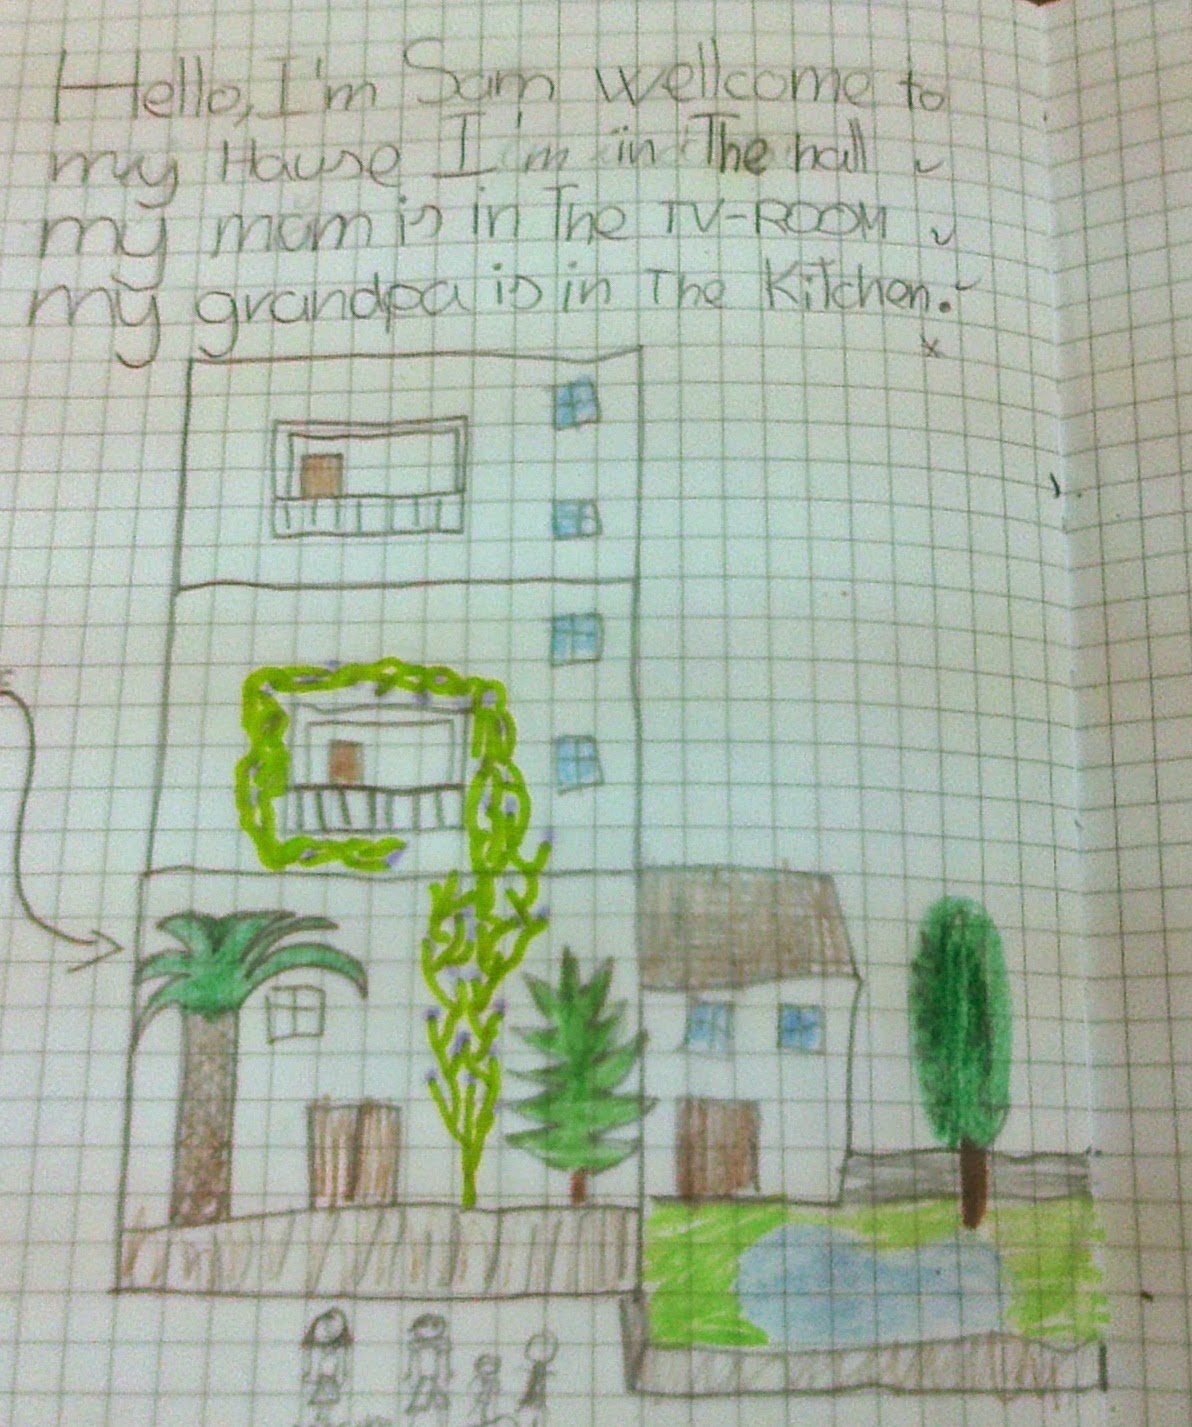 Hello, I'm Sam wellcome to
my Hause I'm in The hall
my mom is in The TV-ROOM
my grandpa is in The Kitchen.